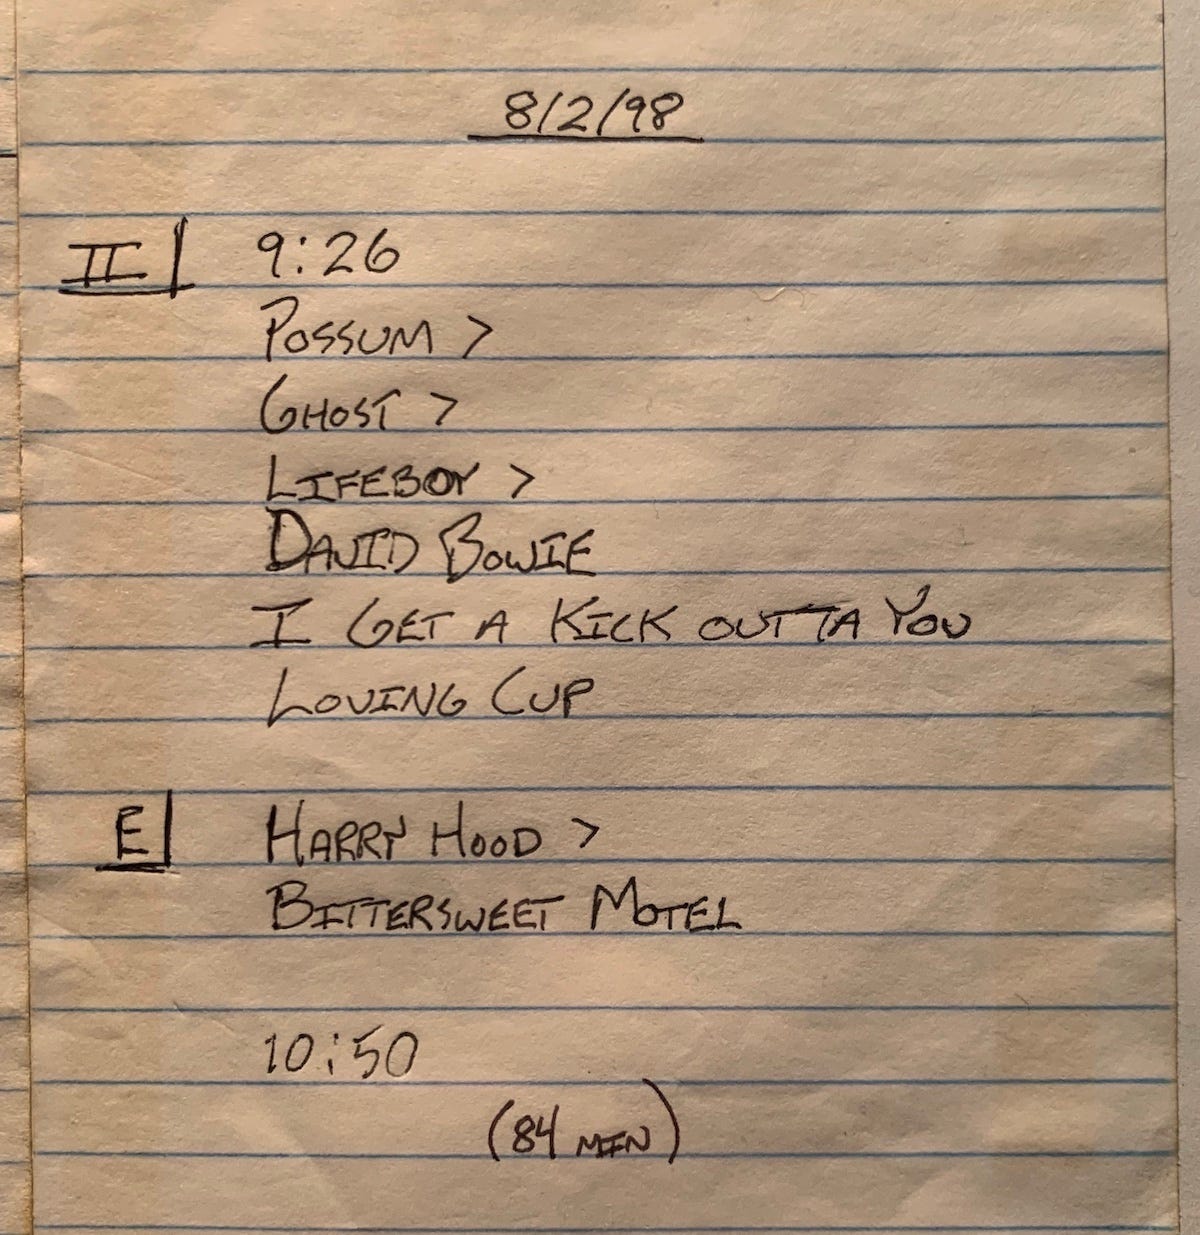 8/2/98
II 9:26
POSSUM >
GHOST >
LIFEBOY >
DAVID BOWIE
I GET A KICK OUTTA YOU
LOVING CUP
E HARRY HOOD >
BITTERSWEET MOTEL
10:50
(84 MIN)